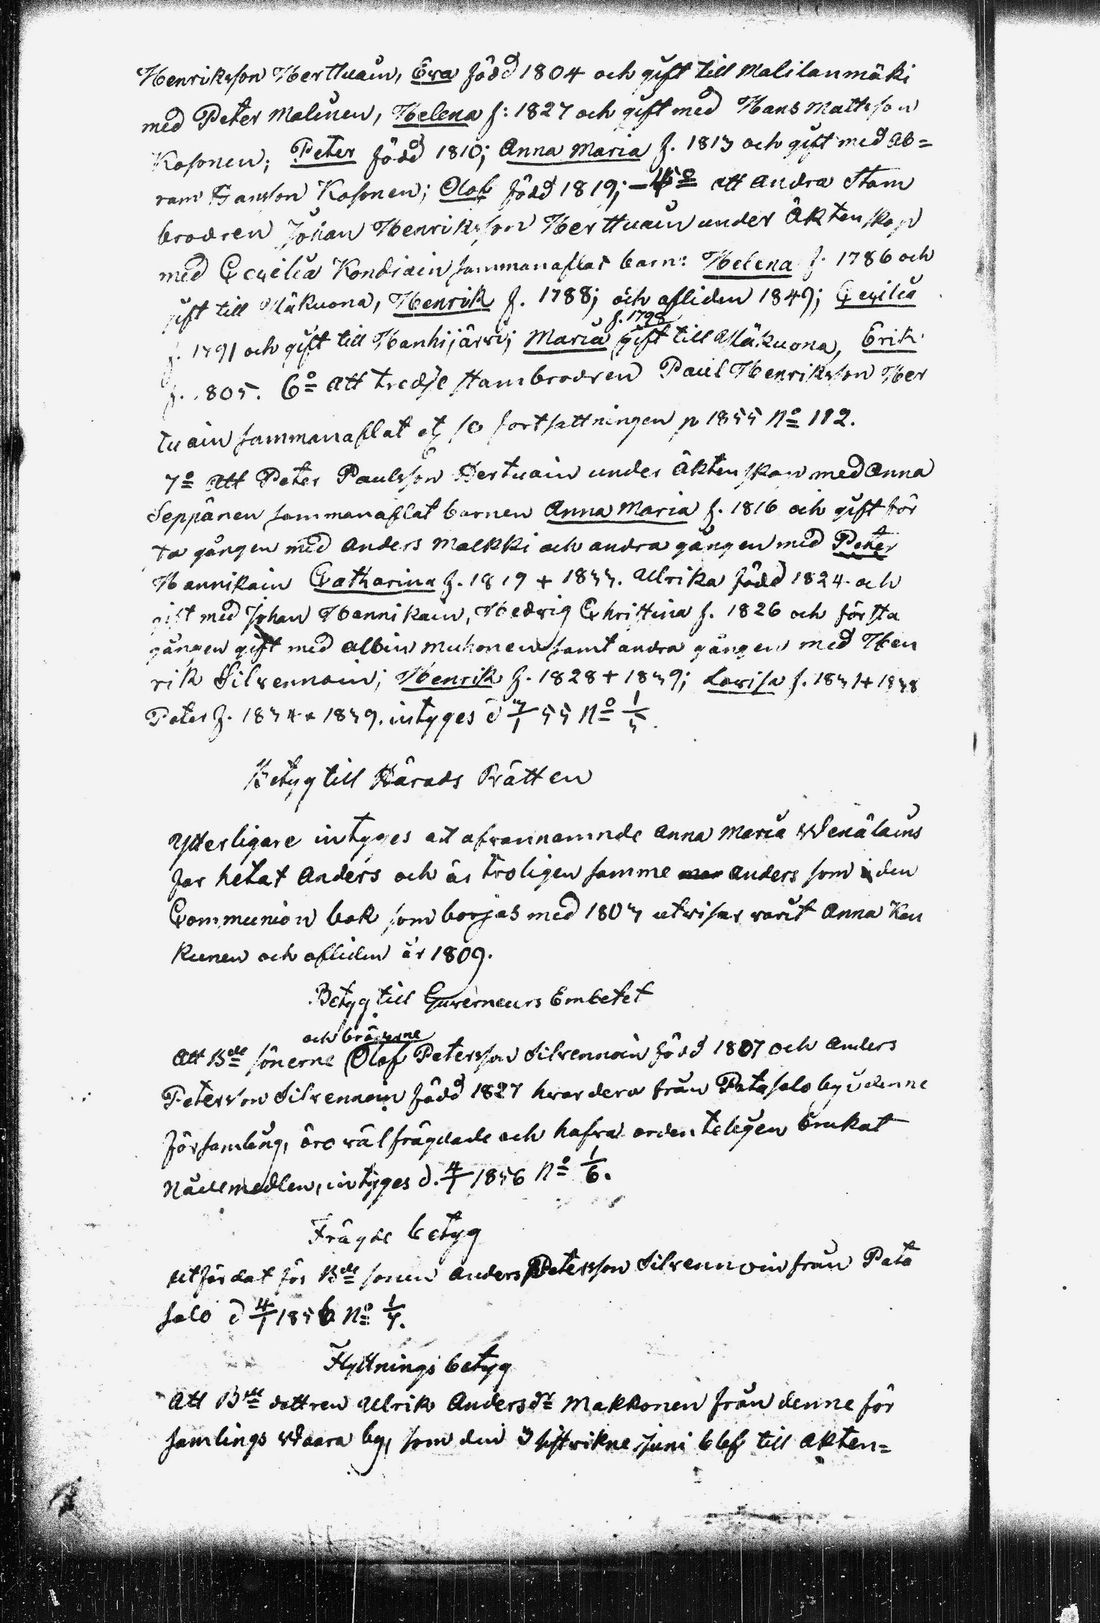 Henriksson Herttuain, Eva född 1804 och gift till Malilanmäki
med Peter Malinen, Helena f: 1827 och gift med Hans Mattsson
Kosonen; Peter född 1810; Anna Maria f. 1813 och gift med Ab=
ram Hansson Kosonen; Olof född 1819; 5o att andra Stam
brodren Johan Henriksson Herttuain under Äktenskap
med Cecilia Kondiain sammanaflat barn: Helena f. 1786 och
gift till Mäkuona, Henrik f. 1788; och afliden 1849; Cecilia
f. 1798
f. 1791 och gift till Hanhijärvi; Maria gift till Mäkuona, Erik
f. 1805. 6o att tredje stambrodren Paul Henriksson Her
tuain sammanaflat etc se fortsattningen p 1855 No 112.
7o Att Peter Paulsson Hertuain under Äktenskap med Anna
Seppänen sammanaflat barnen Anna Maria f. 1816 och gift för
sta gången med Anders Malkki och andra gången med Peter
Hannikain Catharina f. 1819 + 1833. Ulrika född 1824 och
gift med Johan Hannikain, Hedvig Christina f. 1826 och första
gången gift med Albin Mukonen samt andra gången med Hen
rik Silvennoin; Henrik f. 1828 + 1839; Lovisa f. 1831 + 1838
Peter f. 1834 + 1839. intyges d 3/1 55 No 1/5.
Betyg till Härads Rätten
Ytterligare intyges att ofvannamnde Anna Maria Wenäläins
far hetat Anders och är troligen samme Anders som i den
Communion bok som borjas med 1803 utvisar varit Anna Kau
kunen och afliden år 1809.
Betyg till Guverneurs Embetet
och bröderne
Att Bde sönerne Olof Petersson Silvennoin född 1807 och Anders
Petersson Silvennoin född 1827 hvardera från Patasalo by i denne
församling, äro välfrägdade och hafva ordenteligen brukat
Nådemedlen, intyges d. 4/1 1856 No 1/6.
Frägde betyg
utfärdat för Bde sonen Anders Petersson Silvennoin från Pata
salo d 4/1 1856 No 1/7.
Flyttnings betyg
Att Bde dottren Ulrika Andersdr Makkonen från denne för
samlings Waara by, som den 3 sistvikne Juni blef till Akten=